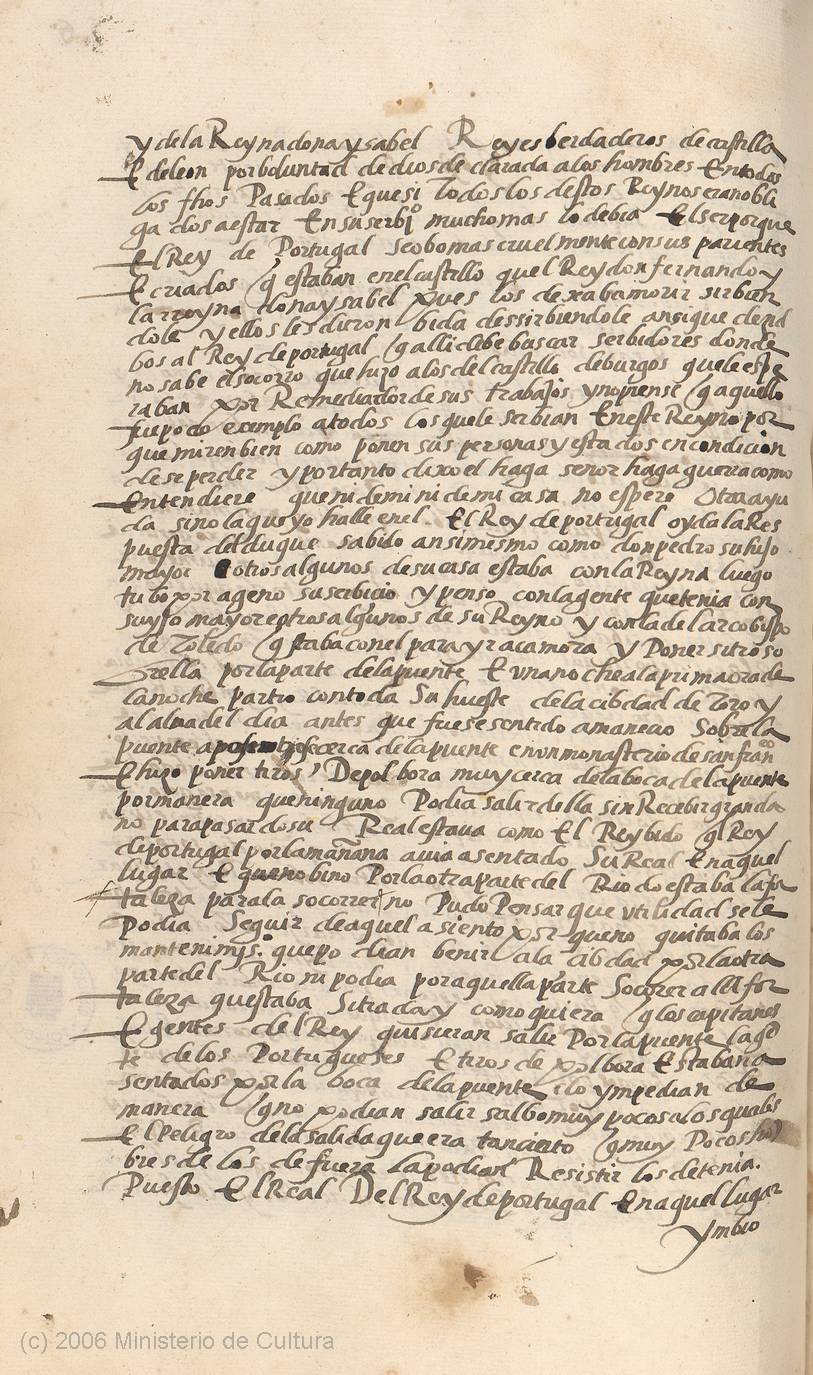 y dela Reyna dona ysabel Reyes berdaderos de castilla
E de leon por boluntad de dios declarada a los hombres En todos
los fhos Pasados E que si Todos los destos Reynos eran obli
gados a estar En su serbiº mucho mas lo debia El ser porque
El Rey de Portugal se obo mas cruel mente con sus parientes
E criados q estaban en el castillo quel Rey don fernando y
la rreyna dona ysabel pues los dexaba morir sirbien
dole y ellos les dieron bida dessirbiendole ansi que dend
bos al Rey de portugal q alli debe buscar serbidores donde
no sabe el socorro que hizo a los del castillo de burgos que le espe
raban por Remediador de sus trabajos y no piense q aquello
fue poco exemplo a todos los que le serbian En este Reyno por
que miren bien como ponen sus personas y estados en condicion
de se perder y por tanto dixo el haga señor haga guerra como
Entendiere que ni de mi ni de mi casa no espere otra ayu
da sino la que yo halle en el. El Rey de portugal oyda la Res
puesta del duque sabido ansimesmo como don pedro su hijo
mayor E otros algunos de su casa estaba con la Reyna luego
tubo por ageno su serbicio y penso con la gente que tenia con
su yjo mayor e otros algunos de su Reyno y con la del arcobispo
de Toledo q staba con el para yr a camora y Poner sitio so
brella por la parte de la puente E una noche a la primaora de
la noche partio con toda Su hueste de la cibdad de Toro y
al alua del dia antes que fuese sentido amanecio Sobre la
puente aposentose cerca de la puente en un monasterio de san franco
E hizo poner tiros De polbora muy cerca de la boca de la puente
por manera que ninguno Podia salir della sin Recebir gran da
no para pasar do su Real estaua como El Rey bido q Rey
de portugal por la mañana auia asentado Su Real En aquel
lugar E que no bino Por la otra parte del Rio do estaba la fo
rtaleza para la socorrer no Pudo Pensar que utilidad se le
Podia Seguir de aquel asiento por que no quitaba los
mantenimjs. que podian benir a la cibdad por la otra
parte del Rio ni podia por aquella parte Socorer a lla for
taleza questaba Sitiada y como quiera q los capitanes
E gentes del Rey quisieran salir Por la puente la gē
te de los Portugueses E tiros de polbora Estaban a
sentados por la boca de la puente i lo ympedian de
manera q no podian salir salbo muy pocos a los quales
El Peligro de la salida que era tan cierto q muy Pocos hō
bres de los de fuera la podian Resistir los detenia.
Puesto El Real Del Rey de portugal En aquel lugar
Ymbio
(c) 2006 Ministerio de Cultura